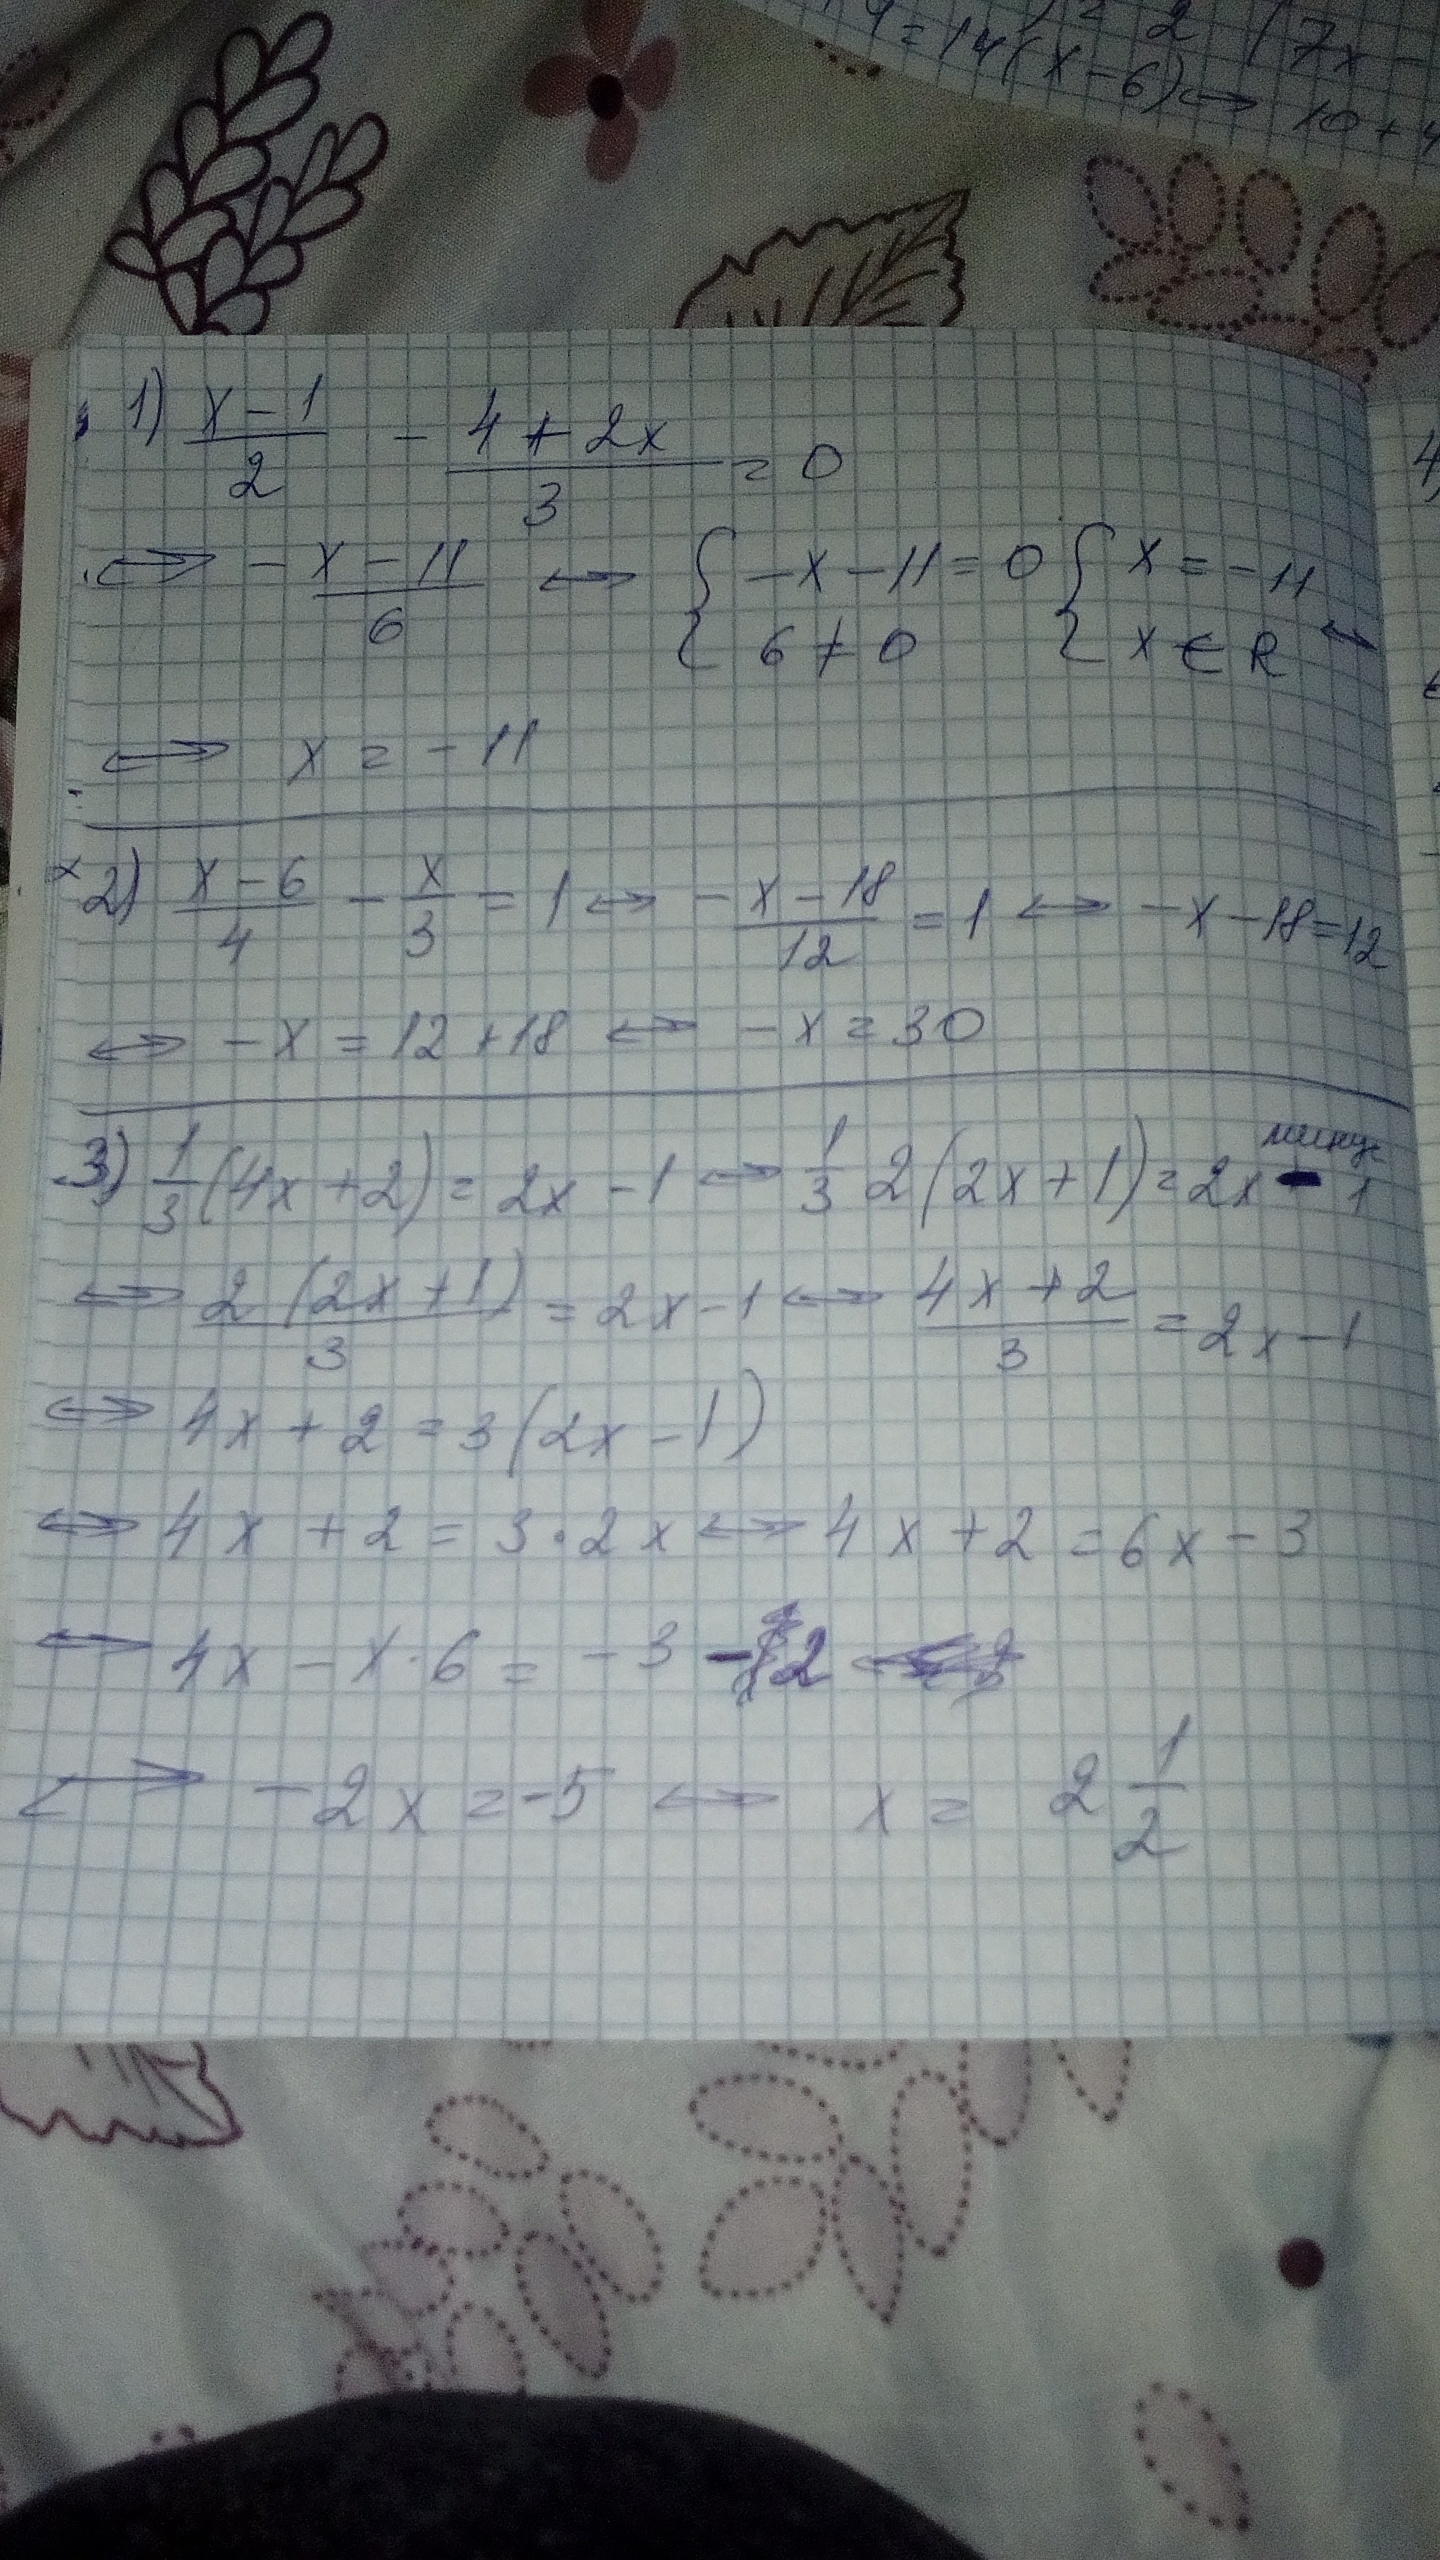 = 2 (7x -
= 14(x-6) ⟷ 10+4
1) \frac{x-1}{2} - \frac{4+2x}{3} = 0
⟷ \frac{-x-11}{6} ⟷ { -x-11=0 { x=-11
6≠0 x∈R ⟷
⟷ x = -11
2) \frac{x-6}{4} - \frac{x}{3} = 1 ⟷ \frac{-x-18}{12} = 1 ⟷ -x-18=12
⟷ -x = 12+18 ⟷ -x = 30
минус
3) \frac{1}{3}(4x+2) = 2x-1 ⟷ \frac{1}{3} 2(2x+1) = 2x - 1
⟷ \frac{2(2x+1)}{3} = 2x-1 ⟷ \frac{4x+2}{3} = 2x-1
⟷ 4x+2 = 3(2x-1)
⟷ 4x+2 = 3·2x ⟷ 4x+2 = 6x-3
⟷ 4x - x·6 = -3 - 2
⟷ -2x = -5 ⟷ x = 2\frac{1}{2}